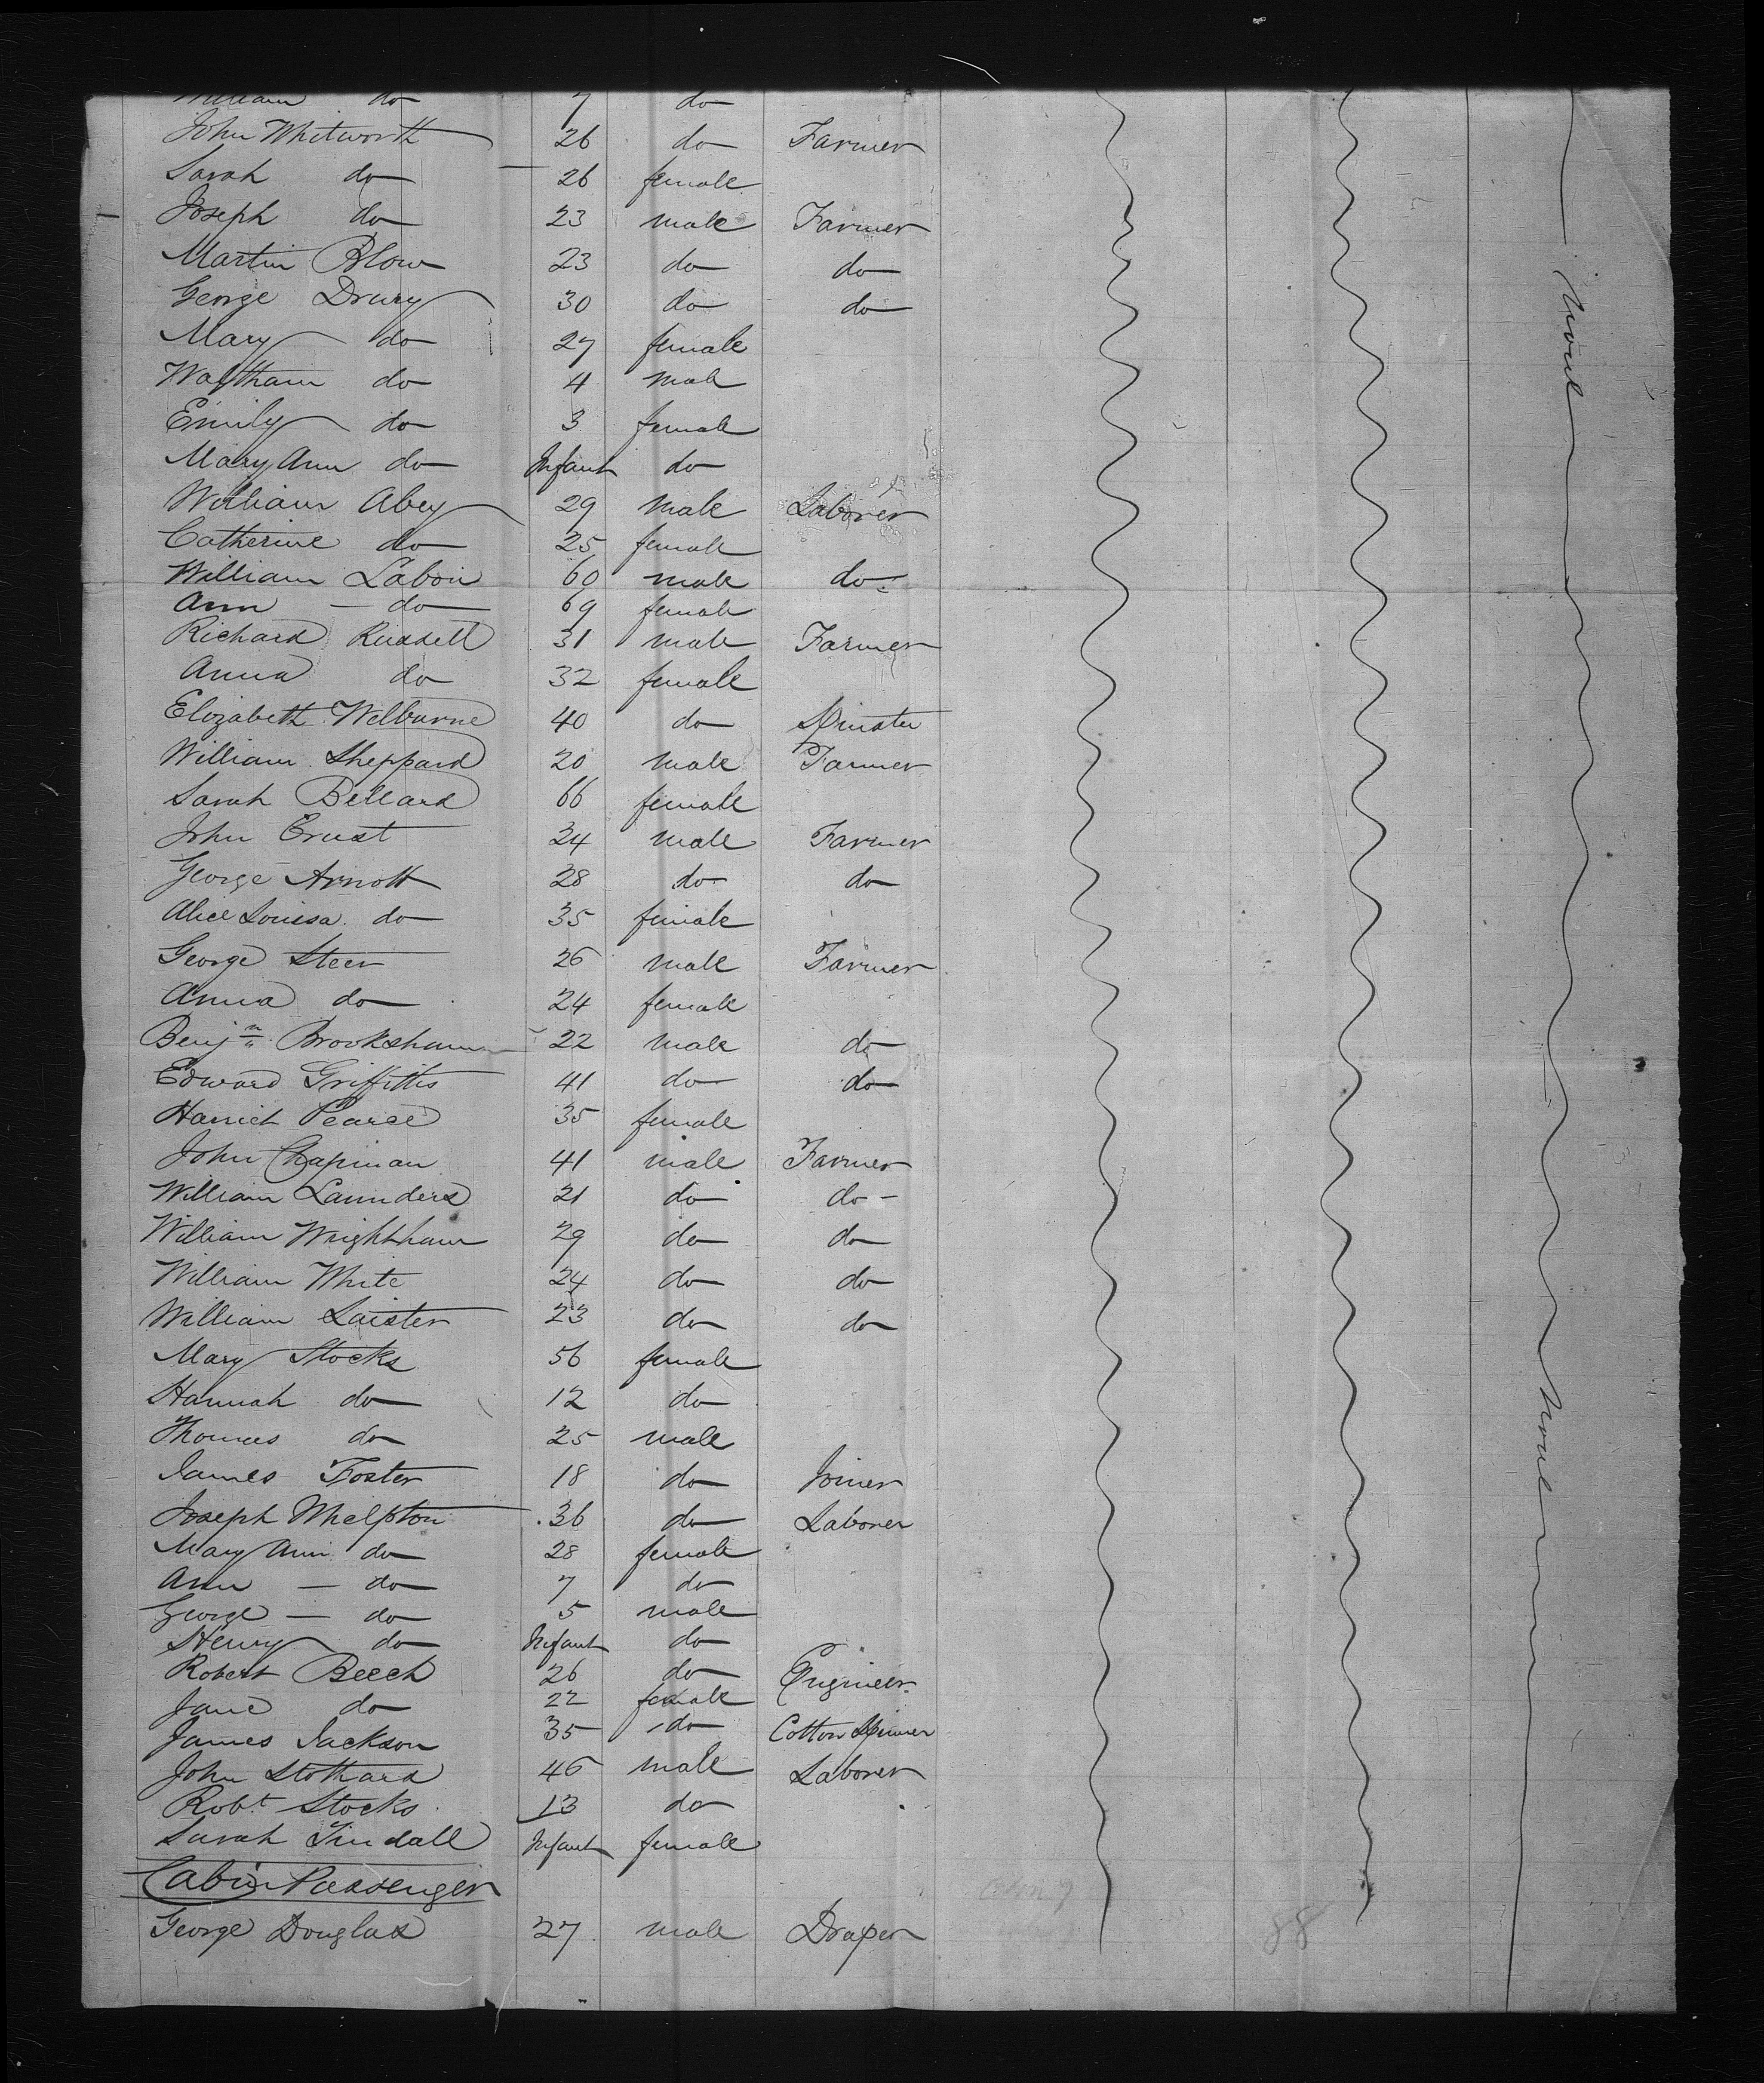 William do 7 do
John Whitworth 26 do Farmer
Sarah do 26 female
Joseph do 23 male Farmer
Martin Blow 23 do do
George Drury 30 do do
Mary do 27 female
Waltham do 4 male
Emily do 3 female
Mary Ann do Infant do
William Abey 29 male Laborer
Catherine do 25 female
William Labon 60 male do
Ann - do 69 female
Richard Russell 31 male Farmer
Anna do 32 female
Elizabeth Welburne 40 do Spinster
William Sheppard 20 male Farmer
Sarah Bellard 66 female
John Ernst 24 male Farmer
George Arnott 28 do do
Alice Louisa do 35 female
George Steer 26 male Farmer
Anna do 24 female
Benjn Brooksham 22 male do
Edward Griffiths 41 do do
Harriet Pearse 35 female
John Chapman 41 male Farmer
William Launders 21 do do
William Wrightham 29 do do
William White 24 do do
William Laister 23 do do
Mary Stocks 56 female
Hannah do 12 do
Thomas do 25 male
James Foster 18 do Joiner
Joseph Whelpton 36 do Laborer
Mary Ann do 28 female
Ann - do 7 do
George - do 5 male
Henry do Infant do
Robert Beech 26 do Engineer
Jane do 22 female
James Jackson 35 do Cotton Spinner
John Stothard 46 male Laborer
Robt Stocks 13 do
Sarah Tindall Infant female
Cabin Passenger
George Douglas 27 male Draper
88